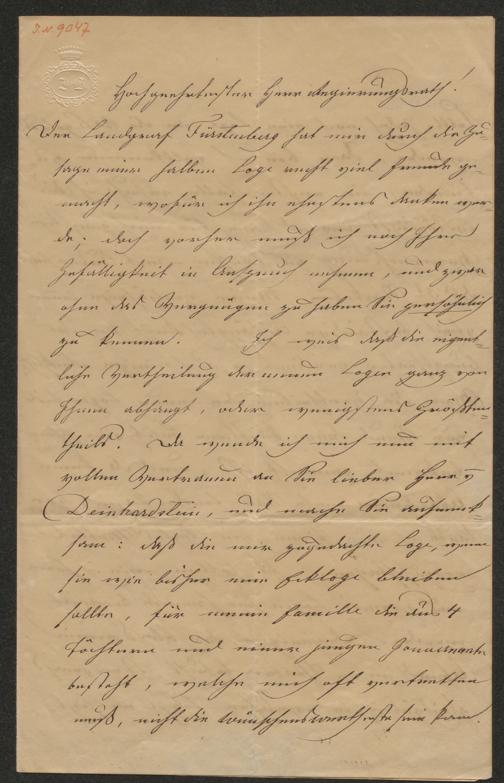 J.N. 9047
Hochgeehrtester Herr Regierungsrath!
Der Landgraf Fürstenberg hat mir durch die Zu-
sage einer halben Loge recht viel Freude ge-
macht, wofür ich ihm ehestens danken wer-
de; doch vorher muß ich noch Ihre
Gefälligkeit in Anspruch nehmen, und zwar
ohne das Vergnügen zu haben Sie persöhnlich
zu kennen. Ich weis daß die eigent-
liche Vertheilung der neuen Logen ganz von
Ihnen abhängt, oder wenigstens Größten-
theils. Da wende ich mich nun mit
vollem Vertrauen an Sie lieber Herr v
Deinhardstein, und mache Sie aufmerk-
sam: daß die mir zugedachte Loge, wenn
sie wie bisher eine Eckloge bleiben
sollte, für meine Familie die aus 4
Töchtern und einer jungen Gouvernante
besteht, welche mich oft vertretten
muß, nicht die wünschenswertheste sein kann.